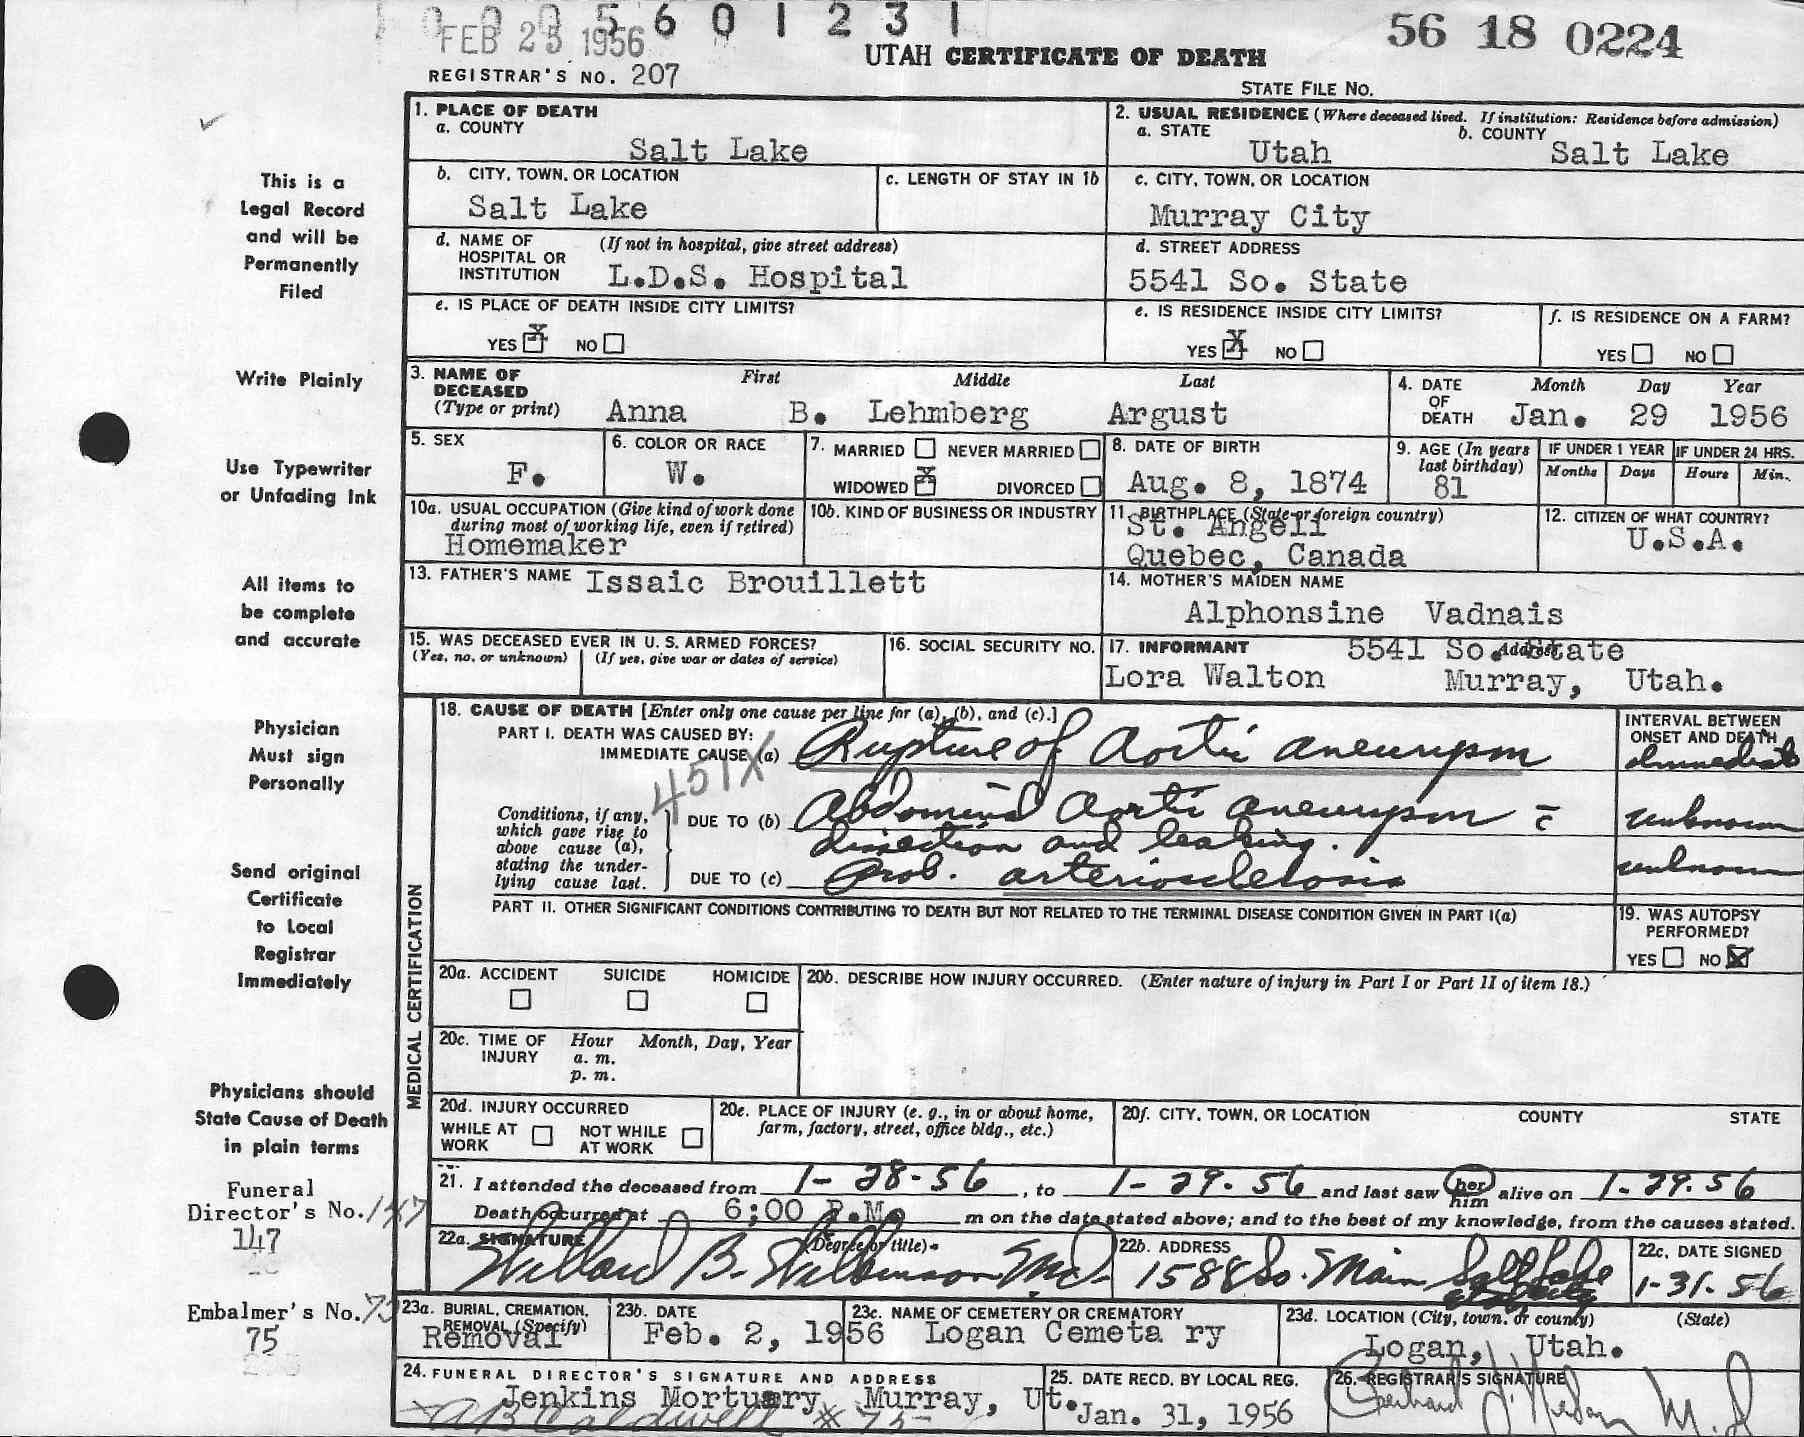 0 0 0 5 6 0 1 2 3 1
FEB 23 1956
56 18 0224
UTAH CERTIFICATE OF DEATH
REGISTRAR'S NO. 207
STATE FILE NO.
1. PLACE OF DEATH
a. COUNTY
Salt Lake
2. USUAL RESIDENCE (Where deceased lived. If institution: Residence before admission)
a. STATE b. COUNTY
Utah Salt Lake
This is a
Legal Record
and will be
Permanently
Filed
b. CITY, TOWN, OR LOCATION
Salt Lake
c. LENGTH OF STAY IN 1b
c. CITY, TOWN, OR LOCATION
Murray City
d. NAME OF HOSPITAL OR INSTITUTION
(If not in hospital, give street address)
L.D.S. Hospital
d. STREET ADDRESS
5541 So. State
e. IS PLACE OF DEATH INSIDE CITY LIMITS?
YES X NO
e. IS RESIDENCE INSIDE CITY LIMITS?
YES X NO
f. IS RESIDENCE ON A FARM?
YES NO
Write Plainly
3. NAME OF DECEASED (Type or print)
First Middle Last
Anna B. Lehmberg Argust
4. DATE OF DEATH
Month Day Year
Jan. 29 1956
Use Typewriter
or Unfading Ink
5. SEX
F.
6. COLOR OR RACE
W.
7. MARRIED NEVER MARRIED
WIDOWED X DIVORCED
8. DATE OF BIRTH
Aug. 8, 1874
9. AGE (In years last birthday)
81
IF UNDER 1 YEAR
Months Days
IF UNDER 24 HRS.
Hours Min.
10a. USUAL OCCUPATION (Give kind of work done
during most of working life, even if retired)
Homemaker
10b. KIND OF BUSINESS OR INDUSTRY
11. BIRTHPLACE (State or foreign country)
St. Angeli
Quebec, Canada
12. CITIZEN OF WHAT COUNTRY?
U.S.A.
All items to
be complete
and accurate
13. FATHER'S NAME Issaic Brouillett
14. MOTHER'S MAIDEN NAME
Alphonsine Vadnais
15. WAS DECEASED EVER IN U. S. ARMED FORCES?
(Yes, no, or unknown) (If yes, give war or dates of service)
16. SOCIAL SECURITY NO.
17. INFORMANT Address
5541 So. State
Lora Walton Murray, Utah.
Physician
Must sign
Personally
MEDICAL CERTIFICATION
18. CAUSE OF DEATH [Enter only one cause per line for (a), (b), and (c).]
PART I. DEATH WAS CAUSED BY:
IMMEDIATE CAUSE (a) Rupture of Aortic aneurysm
INTERVAL BETWEEN
ONSET AND DEATH
Immediate
451X
Conditions, if any,
which gave rise to
above cause (a),
stating the under-
lying cause last.
DUE TO (b) Abdominal Aortic aneurysm c̄
unknown
dissection and leaking.
DUE TO (c) Prob. arteriosclerosis
unknown
Send original
Certificate
to Local
Registrar
Immediately
PART II. OTHER SIGNIFICANT CONDITIONS CONTRIBUTING TO DEATH BUT NOT RELATED TO THE TERMINAL DISEASE CONDITION GIVEN IN PART I(a)
19. WAS AUTOPSY
PERFORMED?
YES NO X
20a. ACCIDENT SUICIDE HOMICIDE
20b. DESCRIBE HOW INJURY OCCURRED. (Enter nature of injury in Part I or Part II of item 18.)
20c. TIME OF INJURY
Hour Month, Day, Year
a. m.
p. m.
Physicians should
State Cause of Death
in plain terms
20d. INJURY OCCURRED
WHILE AT WORK NOT WHILE AT WORK
20e. PLACE OF INJURY (e. g., in or about home,
farm, factory, street, office bldg., etc.)
20f. CITY, TOWN, OR LOCATION COUNTY STATE
21. I attended the deceased from 1-28-56, to 1-29-56 and last saw her him alive on 1-29-56
Death occurred at 6:00 P.M. m on the date stated above; and to the best of my knowledge, from the causes stated.
Funeral
Director's No. 147
147
22a. SIGNATURE (Degree or title)
Willard B. Wilkinson M.D.
22b. ADDRESS
1588 So. Main Salt Lake
22c. DATE SIGNED
1-31-56
Embalmer's No. 75
75
23a. BURIAL, CREMATION,
REMOVAL (Specify)
Removal
23b. DATE
Feb. 2, 1956
23c. NAME OF CEMETERY OR CREMATORY
Logan Cemeta ry
23d. LOCATION (City, town, or county) (State)
Logan, Utah.
24. FUNERAL DIRECTOR'S SIGNATURE AND ADDRESS
Jenkins Mortuary Murray, Ut.
A B Caldwell # 75
25. DATE RECD. BY LOCAL REG.
Jan. 31, 1956
26. REGISTRAR'S SIGNATURE
M.D